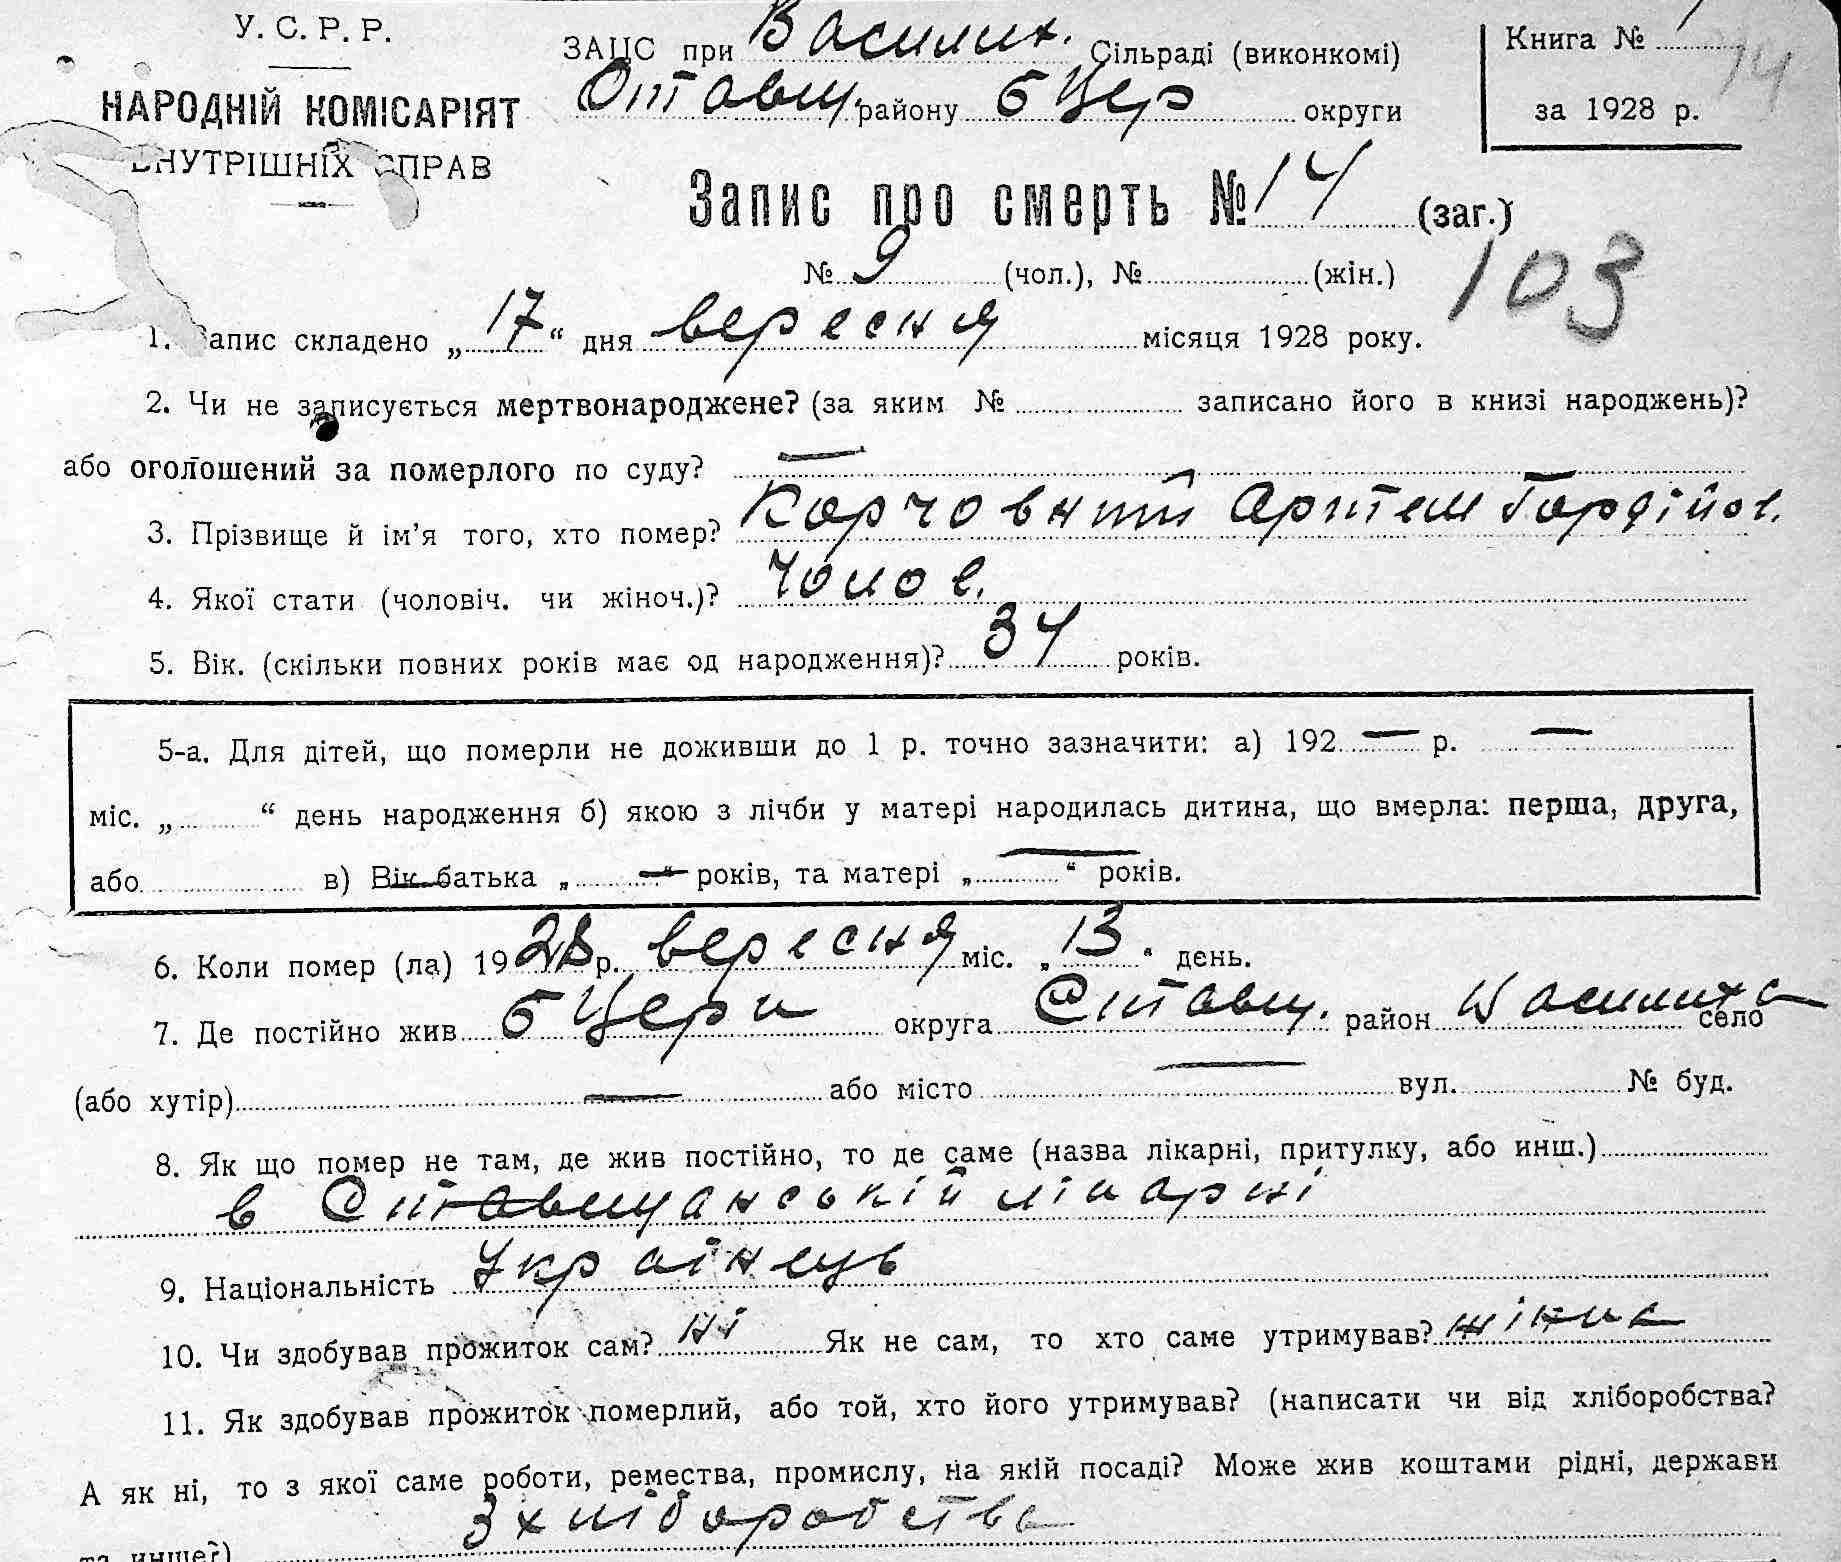 У. С. Р. Р.
НАРОДНІЙ КОМІСАРІЯТ
ВНУТРІШНІХ СПРАВ
ЗАЦС при Василих. Сільраді (виконкомі)
Ставищ. району Б Цер округи
Книга № 1
14
за 1928 р.
Запис про смерть № 14 (заг.)
№ 9 (чол.), № (жін.)
103
1. Запис складено „ 17 “ дня вересня місяця 1928 року.
2. Чи не записується мертвонароджене? (за яким № записано його в книзі народжень)?
або оголошений за померлого по суду? —
3. Прізвище й ім’я того, хто помер? Корчовний Артем Гордійов.
4. Якої стати (чоловіч. чи жіноч.)? Чолов.
5. Вік. (скільки повних років має од народження)? 34 років.
5-а. Для дітей, що померли не доживши до 1 р. точно зазначити: а) 192 — р. —
міс. „ “ день народження б) якою з лічби у матері народилась дитина, що вмерла: перша, друга,
або в) Вік батька „ — “ років, та матері „ — “ років.
6. Коли помер (ла) 1928 р. вересня міс. „ 13 “ день.
7. Де постійно жив Б Церк округа Ставищ. район Василиха село
(або хутір) — або місто — вул. № буд.
8. Як що помер не там, де жив постійно, то де саме (назва лікарні, притулку, або инш.)
в Ставищанській лікарні
9. Національність Українець
10. Чи здобував прожиток сам? ні Як не сам, то хто саме утримував? жінка
11. Як здобував прожиток померлий, або той, хто його утримував? (написати чи від хліборобства?
А як ні, то з якої саме роботи, ремества, промислу, на якій посаді? Може жив коштами рідні, держави
та инше?) З хліборобства